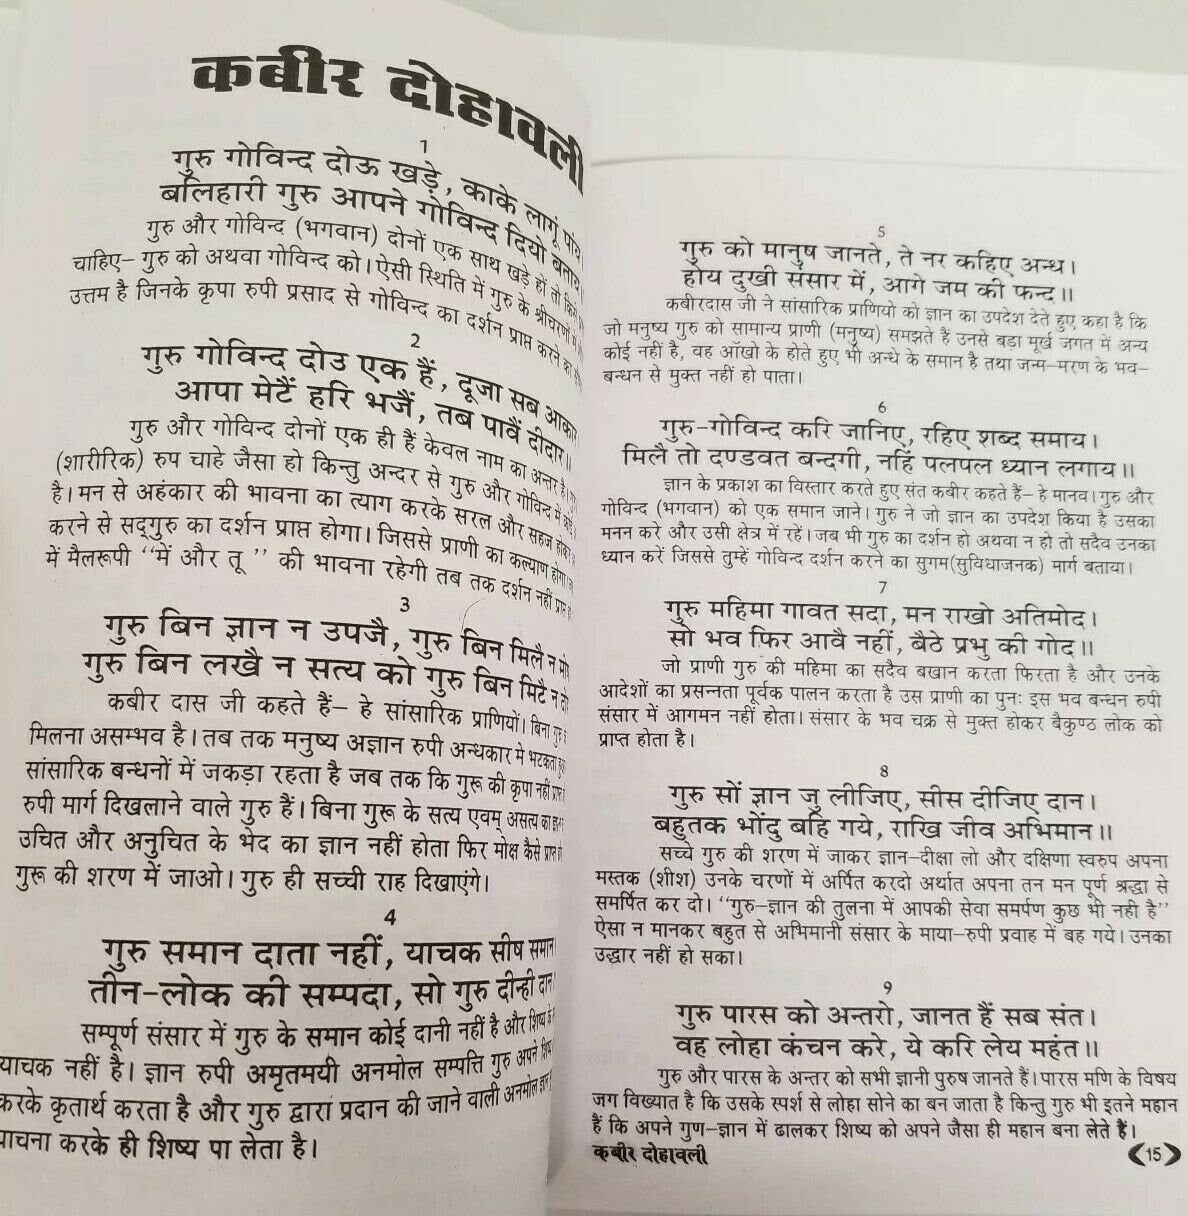 कबीर दोहावली
1
गुरु गोविन्द दोऊ खड़े, काके लागूं पांय।
बलिहारी गुरु आपने गोविन्द दियो बताय।
गुरु और गोविन्द (भगवान) दोनों एक साथ खड़े हों तो किसे
चाहिए– गुरु को अथवा गोविन्द को। ऐसी स्थिति में गुरु के श्रीचरणों में
उत्तम है जिनके कृपा रुपी प्रसाद से गोविन्द का दर्शन प्राप्त करने का
2
गुरु गोविन्द दोउ एक हैं, दूजा सब आकार
आपा मेटैं हरि भजैं, तब पावैं दीदार॥
गुरु और गोविन्द दोनों एक ही हैं केवल नाम का अन्तर है।
(शारीरिक) रुप चाहे जैसा हो किन्तु अन्दर से गुरु और गोविन्द में
है। मन से अहंकार की भावना का त्याग करके सरल और सहज होकर
करने से सद्गुरु का दर्शन प्राप्त होगा। जिससे प्राणी का कल्याण होगा।
में मैलरूपी ‘‘में और तू ’’ की भावना रहेगी तब तक दर्शन नहीं प्राप्त
3
गुरु बिन ज्ञान न उपजै, गुरु बिन मिलै न
गुरु बिन लखै न सत्य को गुरु बिन मिटै न
कबीर दास जी कहते हैं– हे सांसारिक प्राणियों। बिना गुरु
मिलना असम्भव है। तब तक मनुष्य अज्ञान रुपी अन्धकार मे भटकता
सांसारिक बन्धनों में जकड़ा रहता है जब तक कि गुरू की कृपा नहीं
रुपी मार्ग दिखलाने वाले गुरु हैं। बिना गुरू के सत्य एवम् असत्य का
उचित और अनुचित के भेद का ज्ञान नहीं होता फिर मोक्ष कैसे प्राप्त
गुरू की शरण में जाओ। गुरु ही सच्ची राह दिखाएंगे।
4
गुरु समान दाता नहीं, याचक सीष समान
तीन–लोक की सम्पदा, सो गुरु दीन्ही दान
सम्पूर्ण संसार में गुरु के समान कोई दानी नहीं है और शिष्य के
याचक नहीं है। ज्ञान रुपी अमृतमयी अनमोल सम्पत्ति गुरु अपने शिष्य
करके कृतार्थ करता है और गुरु द्वारा प्रदान की जाने वाली अनमोल ज्ञान
याचना करके ही शिष्य पा लेता है।
5
गुरु को मानुष जानते, ते नर कहिए अन्ध।
होय दुखी संसार में, आगे जम की फन्द॥
कबीरदास जी ने सांसारिक प्राणियो को ज्ञान का उपदेश देते हुए कहा है कि
जो मनुष्य गुरु को सामान्य प्राणी (मनुष्य) समझते हैं उनसे बडा मूर्ख जगत में अन्य
कोई नहीं है, वह ऑखो के होते हुए भी अन्धे के समान है तथा जन्म–मरण के भव–
बन्धन से मुक्त नहीं हो पाता।
6
गुरु–गोविन्द करि जानिए, रहिए शब्द समाय।
मिलै तो दण्डवत बन्दगी, नहिं पलपल ध्यान लगाय॥
ज्ञान के प्रकाश का विस्तार करते हुए संत कबीर कहते हैं– हे मानव। गुरु और
गोविन्द (भगवान) को एक समान जाने। गुरु ने जो ज्ञान का उपदेश किया है उसका
मनन करे और उसी क्षेत्र में रहें। जब भी गुरु का दर्शन हो अथवा न हो तो सदैव उनका
ध्यान करें जिससे तुम्हें गोविन्द दर्शन करने का सुगम(सुविधाजनक) मार्ग बताया।
7
गुरु महिमा गावत सदा, मन राखो अतिमोद।
सो भव फिर आवै नहीं, बैठे प्रभु की गोद॥
जो प्राणी गुरु की महिमा का सदैव बखान करता फिरता है और उनके
आदेशों का प्रसन्नता पूर्वक पालन करता है उस प्राणी का पुनः इस भव बन्धन रुपी
संसार में आगमन नहीं होता। संसार के भव चक्र से मुक्त होकर बैकुण्ठ लोक को
प्राप्त होता है।
8
गुरु सों ज्ञान जु लीजिए, सीस दीजिए दान।
बहुतक भोंदु बहि गये, राखि जीव अभिमान॥
सच्चे गुरु की शरण में जाकर ज्ञान–दीक्षा लो और दक्षिणा स्वरुप अपना
मस्तक (शीश) उनके चरणों में अर्पित करदो अर्थात अपना तन मन पूर्ण श्रद्धा से
समर्पित कर दो। ‘‘गुरु–ज्ञान की तुलना में आपकी सेवा समर्पण कुछ भी नही है’’
ऐसा न मानकर बहुत से अभिमानी संसार के माया–रुपी प्रवाह में बह गये। उनका
उद्धार नहीं हो सका।
9
गुरु पारस को अन्तरो, जानत हैं सब संत।
वह लोहा कंचन करे, ये करि लेय महंत॥
गुरु और पारस के अन्तर को सभी ज्ञानी पुरुष जानते हैं। पारस मणि के विषय
जग विख्यात है कि उसके स्पर्श से लोहा सोने का बन जाता है किन्तु गुरु भी इतने महान
हैं कि अपने गुण–ज्ञान में ढालकर शिष्य को अपने जैसा ही महान बना लेते हैं।
कबीर दोहावली
15